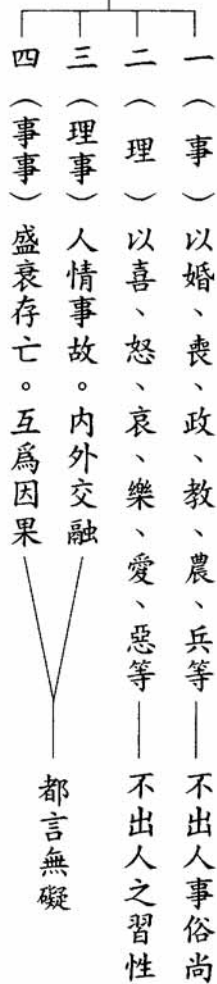 一（事）以婚、喪、政、教、農、兵等——不出人事俗尚
二（理）以喜、怒、哀、樂、愛、惡等——不出人之習性
三（理事）人情事故。內外交融
四（事事）盛衰存亡。互爲因果
都言無礙